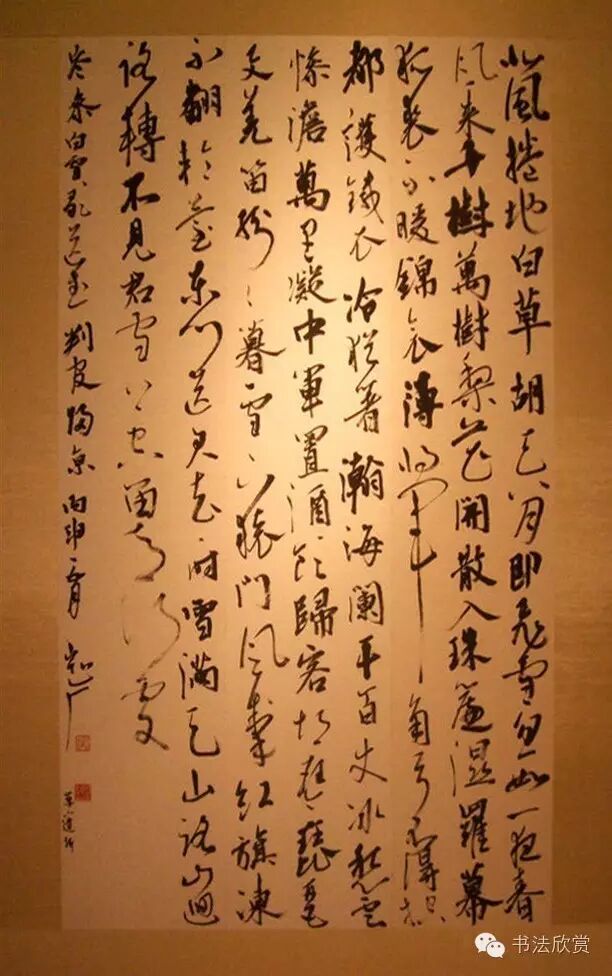 北風捲地白草胡天八月即飛雪忽如一夜春
風來千樹萬樹梨花開散入珠簾濕羅幕
狐裘不暖錦衾薄將軍角弓不得控
都護鐵衣冷猶著瀚海闌干百丈冰愁雲
慘澹萬里凝中軍置酒飲歸客胡琴琵琶
與羌笛紛々暮雪下轅門風掣紅旗凍
不翻輪臺東門送君去時雪滿天山路山迴
路轉不見君雪上空留馬行處
岑參白雪歌送武判官歸京 丙申
书法欣赏